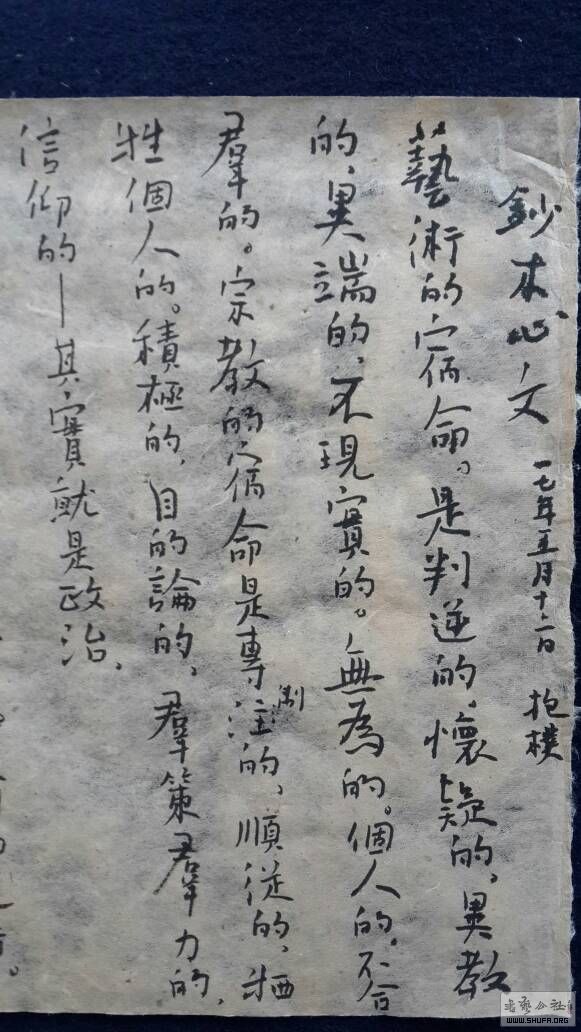 鈔木心文 一七年五月十二日 抱樸
藝術的宿命。是判逆的、懷疑的、異教
的、異端的、不現實的。無為的。個人的、不合
羣的。宗教的宿命是專注的、順從的、牺
制
牲個人的。積極的、目的論的、羣策羣力的、
信仰的—其實就是政治、
書藝公社
WWW.SHUFA.ORG